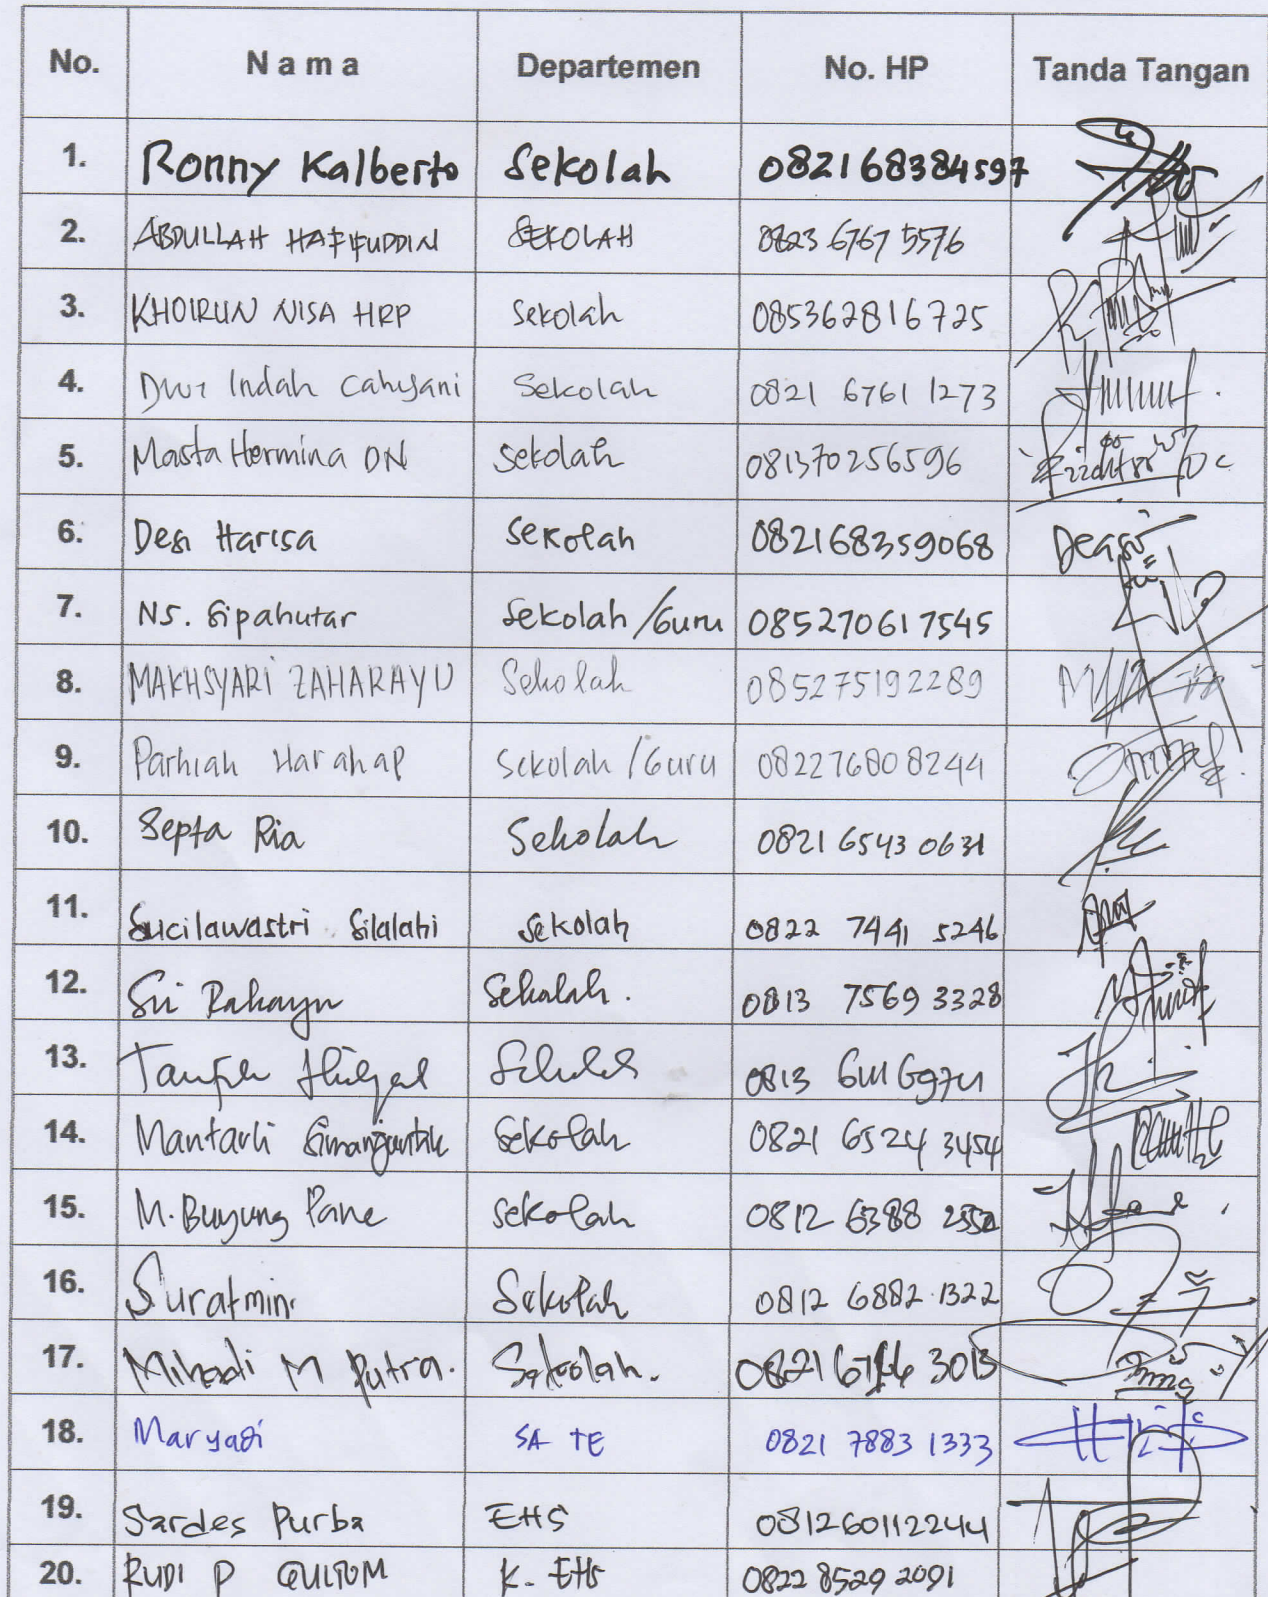 No. Nama Departemen No. HP Tanda Tangan
1. Ronny Kalberto Sekolah 082168384597
2. ABDULLAH HAFIFUDDIN SEKOLAH 0823 6767 5576
3. KHOIRUN NISA HRP Sekolah 085362816725
4. Dwi Indah Cahyani Sekolah 0821 6761 1273
5. Masta Hermina DN Sekolah 081370256596
6. Desi Harisa Sekolah 082168359068
7. NS. Sipahutar Sekolah/Guru 085270617545
8. MAKHSYARI ZAHARAYU Sekolah 085275192289
9. Parhiah Harahap Sekolah/Guru 082276808244
10. Septa Ria Sekolah 0821 6543 0631
11. Sucilawastri Silalahi Sekolah 0822 7441 5246
12. Sri Rahayu Sekolah. 0813 7569 3328
13. Taufik Sekolah 0813
14. Mantarli Simanjuntak Sekolah 0821 6524 3454
15. M. Buyung Pane Sekolah 0812 6388
16. Suratmini Sekolah 0812 6882 1322
17. M Putra. Sekolah. 0821 3013
18. Maryadi SA TE 0821 7883 1333
19. Sardes Purba EHS 081260112244
20. RUDI P K. EHS 0822 8529 2091